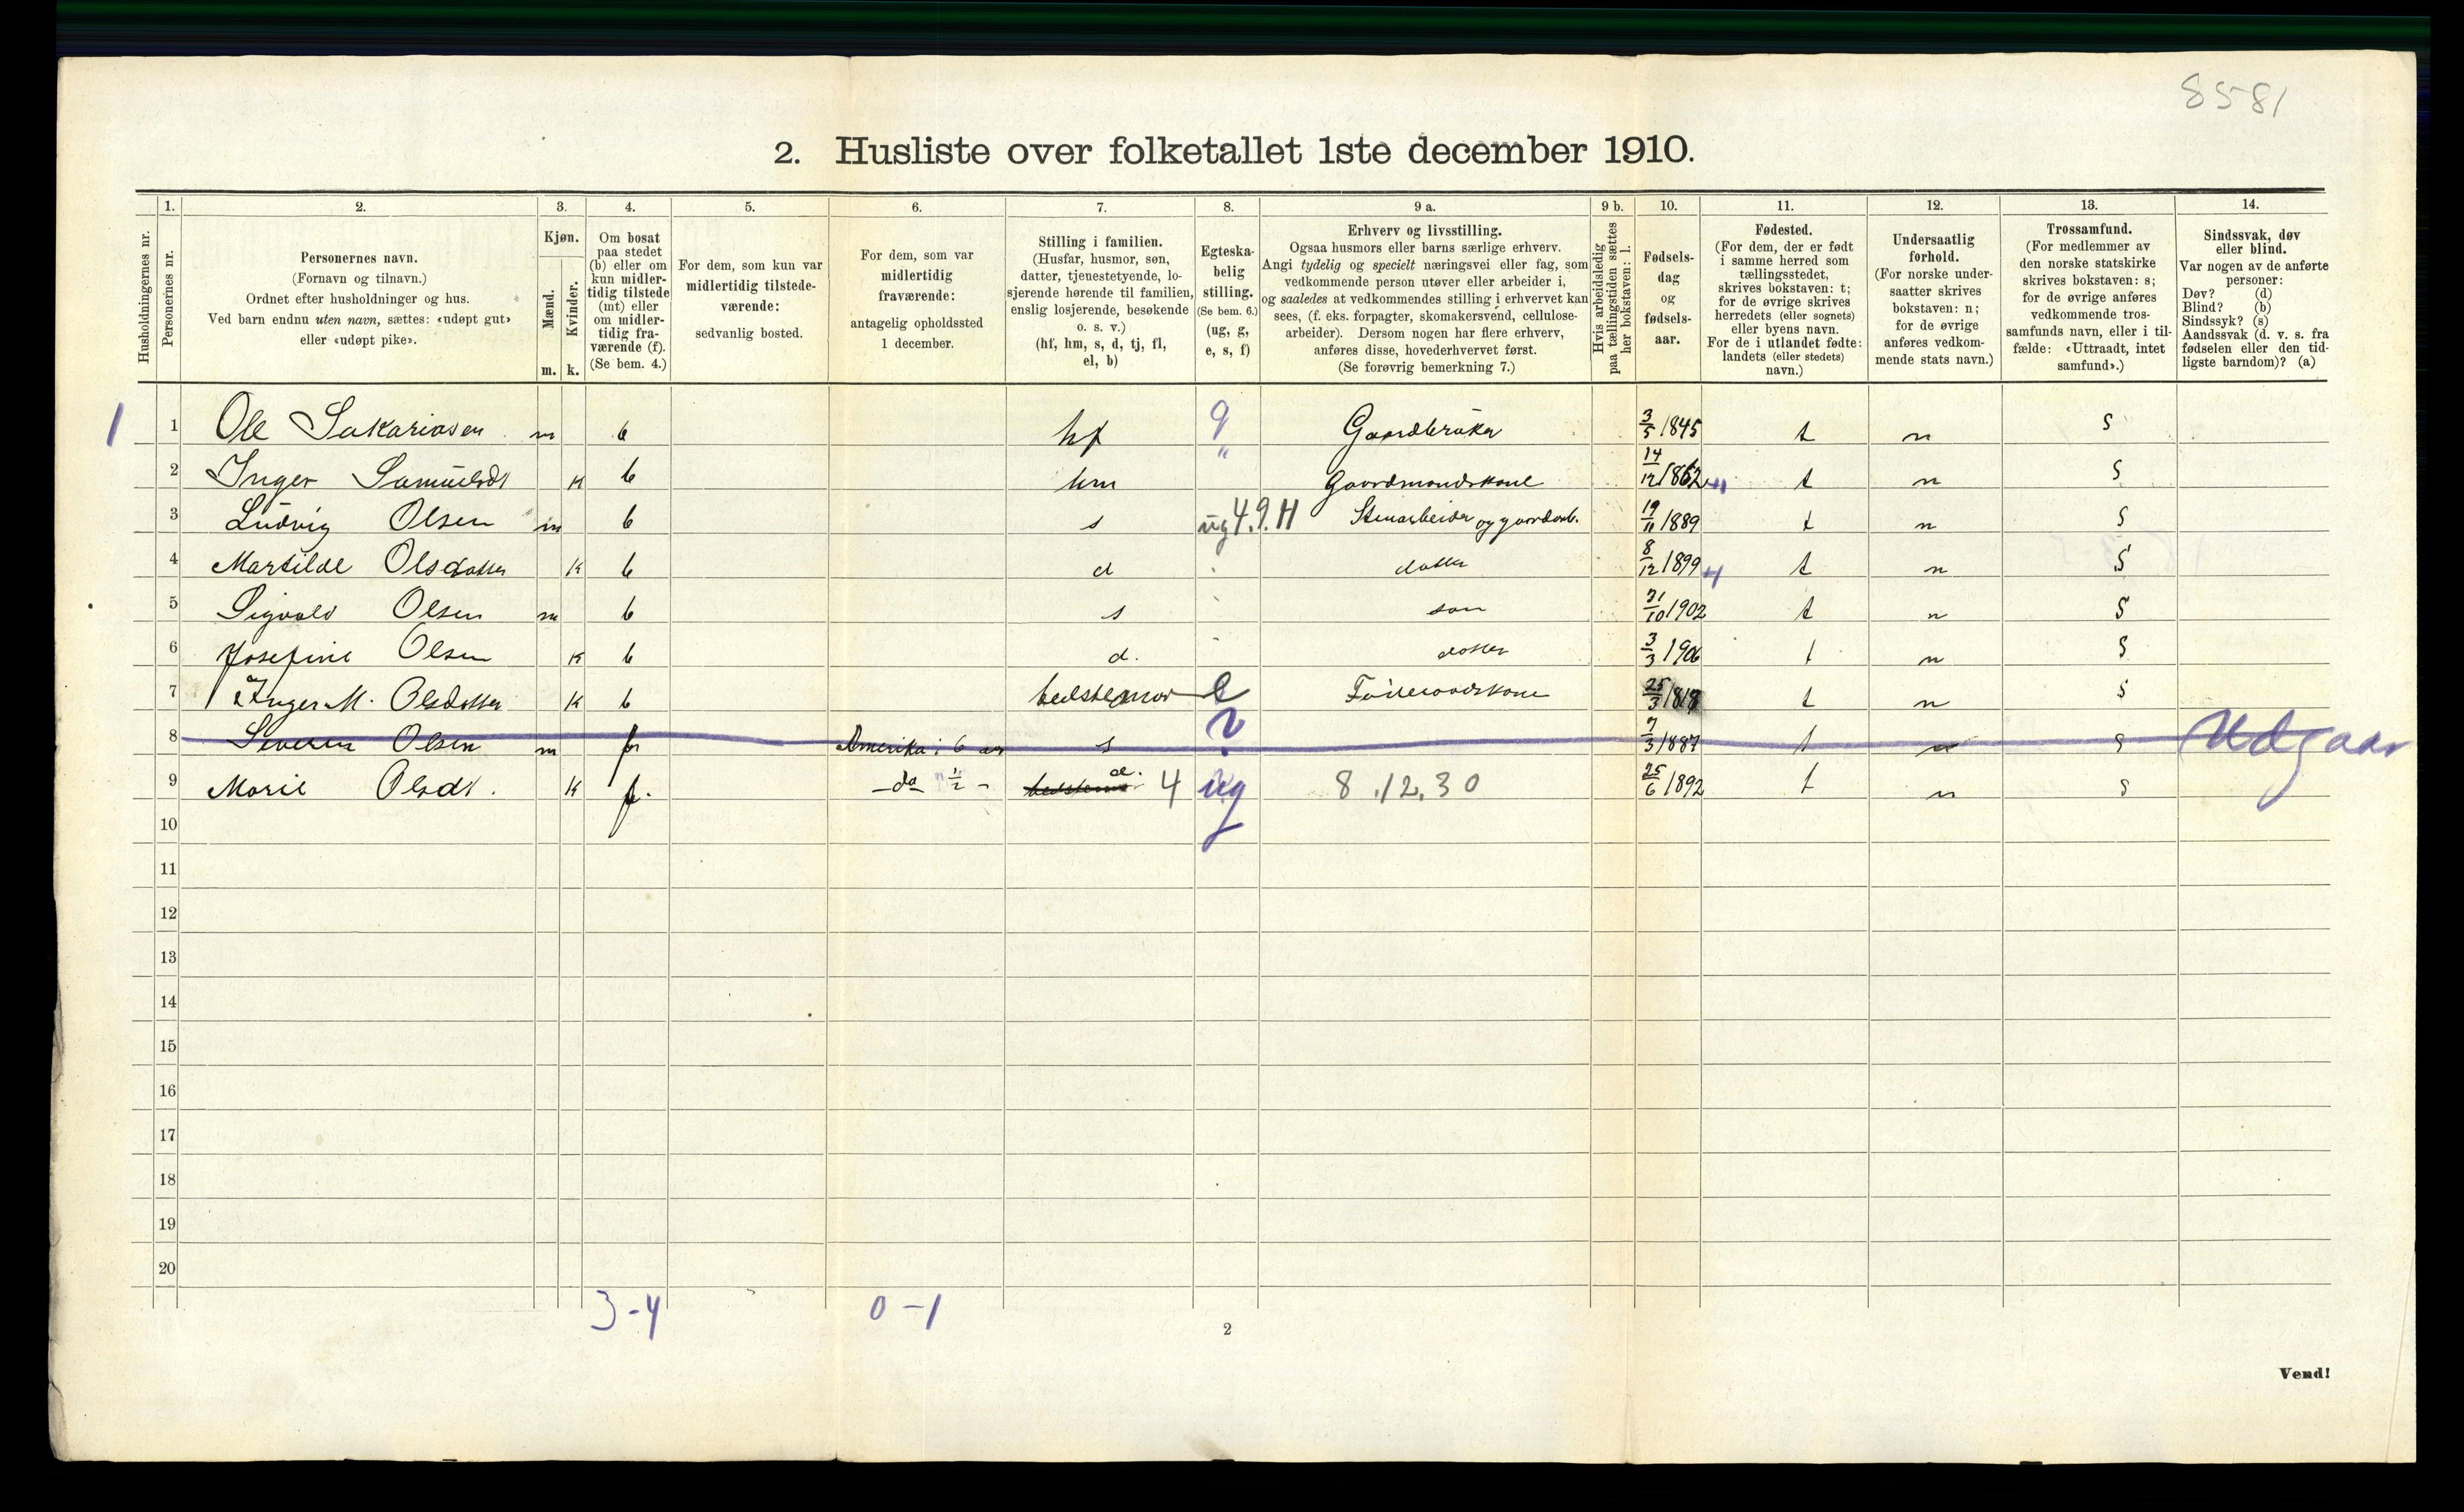 8581
2. Husliste over folketallet 1ste december 1910.
1. 2. 3. 4. 5. 6. 7. 8. 9 a. 9 b. 10. 11. 12. 13. 14.
Husholdningernes nr.
Personernes nr.
Personernes navn.
(Fornavn og tilnavn.)
Ordnet efter husholdninger og hus.
Ved barn endnu uten navn, sættes: «udøpt gut»
eller «udøpt pike».
Kjøn.
Mænd.
Kvinder.
m. k.
Om bosat
paa stedet
(b) eller om
kun midler-
tidig tilstede
(mt) eller
om midler-
tidig fra-
værende (f).
(Se bem. 4.)
For dem, som kun var
midlertidig tilstede-
værende:
sedvanlig bosted.
For dem, som var
midlertidig
fraværende:
antagelig opholdssted
1 december.
Stilling i familien.
(Husfar, husmor, søn,
datter, tjenestetyende, lo-
sjerende hørende til familien,
enslig losjerende, besøkende
o. s. v.)
(hf, hm, s, d, tj, fl,
el, b)
Egteska-
belig
stilling.
(Se bem. 6.)
(ug, g,
e, s, f)
Erhverv og livsstilling.
Ogsaa husmors eller barns særlige erhverv.
Angi tydelig og specielt næringsvei eller fag, som
vedkommende person utøver eller arbeider i,
og saaledes at vedkommendes stilling i erhvervet kan
sees, (f. eks. forpagter, skomakersvend, cellulose-
arbeider). Dersom nogen har flere erhverv,
anføres disse, hovederhvervet først.
(Se forøvrig bemerkning 7.)
Hvis arbeidsledig
paa tællingstiden sættes
her bokstaven: l.
Fødsels-
dag
og
fødsels-
aar.
Fødested.
(For dem, der er født
i samme herred som
tællingsstedet,
skrives bokstaven: t;
for de øvrige skrives
herredets (eller sognets)
eller byens navn.
For de i utlandet fødte:
landets (eller stedets)
navn.)
Undersaatlig
forhold.
(For norske under-
saatter skrives
bokstaven: n;
for de øvrige
anføres vedkom-
mende stats navn.)
Trossamfund.
(For medlemmer av
den norske statskirke
skrives bokstaven: s;
for de øvrige anføres
vedkommende tros-
samfunds navn, eller i til-
fælde: «Uttraadt, intet
samfund».)
Sindssvak, døv
eller blind.
Var nogen av de anførte
personer:
Døv? (d)
Blind? (b)
Sindssyk? (s)
Aandssvak (d. v. s. fra
fødselen eller den tid-
ligste barndom)? (a)
1 1 Ole Sakariasen m b hf g Gaardbruker 3/5 1845 t n s
2 Inger Samuelsdt k b hm " Gaardmandskone 14/12 1862 t n s
3 Ludvig Olsen m b s ug 4.9.H Stenarbeider og gaardarb. 19/11 1889 t n s
4 Martilde Olsdatter k b d datter 8/12 1899 t n s
5 Sigvald Olsen m b s søn 31/10 1902 t n s
6 Josefine Olsen k b d. datter 3/3 1906 t n s
7 Inger M. Olsdatter k b bedstemor e 25/3 1818 t n s
8 Severin Olsen m f Amerika i 6 aar s ? 7/3 1887 t n s Udgaar
9 Marie Olsdt. k f. -do- 1/2 - d. 4 ug 8.12.30 25/6 1892 t n s
10
11
12
13
14
15
16
17
18
19
20
3-4 0-1
2
Vend!